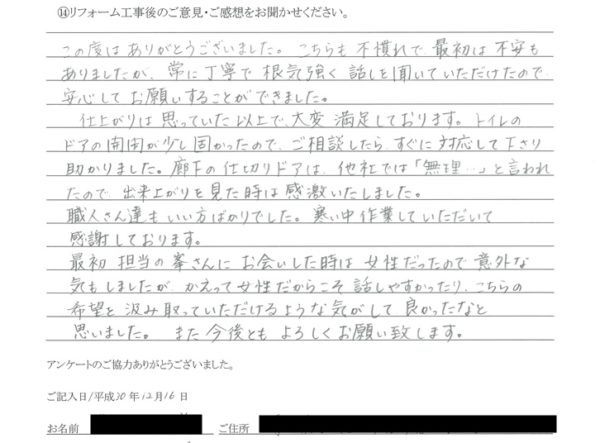 ⑭リフォーム工事後のご意見・ご感想をお聞かせください。
この度は ありがとうございました。こちらも 不慣れで、最初は 不安も
ありましたが、常に丁寧で 根気強く 話しを聞いていただけたので、
安心して お願いすることができました。
仕上がりは 思っていた以上で、大変 満足しております。トイレの
ドアの開閉が少し固かったので、ご相談したら、すぐに対応して下さり
助かりました。廊下の仕切りドアは、他社では「無理…」と言われ
たので、出来上がりを見た時は 感激いたしました。
職人さん達も いい方ばかりでした。寒い中 作業していただいて
感謝しております。
最初 担当の峯さんに お会いした時は 女性だったので 意外な
気もしましたが、かえって女性だからこそ 話しやすかったり、こちらの
希望を 汲み取っていただけるような気がして 良かったなと
思いました。また 今後とも よろしくお願い致します。
アンケートのご協力ありがとうございました。
ご記入日/平成30年12月16日
お名前 ご住所